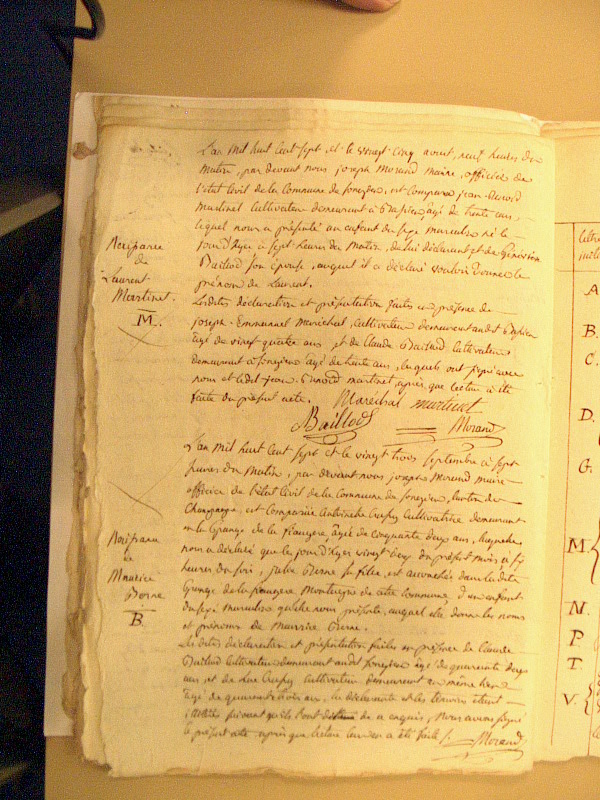 L'an mil huit cent sept et le vingt cinq avout, neuf heures du
matin, par devant nous joseph Morand maire, officier de
l'état civil de la Commune de songieu, est comparu jean
martinet Cultivateur demeurant à agé de trente ans,
lequel nous a présenté un enfant du sexe masculin né le
jour d'hyer à sept heures du matin, de lui déclarant et de
Baillod son épouse, auquel il a déclaré vouloir donner le
prénom de Laurent.
Lesdites déclaration et présentation faites en présence de
joseph Emmanuel maréchal, cultivateur demeurant audit
agé de vingt quatre ans et de Claude Baillod cultivateur
demeurant à songieu agé de trente ans, lesquels ont signé avec
nous et ledit jean martinet, après que lecture a été
faite du présent acte. Maréchal martinet
Baillod Morand
Naissance
de
Laurent
Martinet.
M.
L'an mil huit cent sept et le vingt trois septembre à sept
heures du matin, par devant nous joseph Morand maire
officier de l'état civil de la commune de songieu, canton de
Champagne, est comparue Antoinette Cultivatrice demeurant
à la Grange de la agée de cinquante deux ans, laquelle
nous a déclaré que le jour d'hyer vingt deux du présent mois à six
heures du soir, julie Borne sa fille, est accouchée dans la dite
Grange de la Montagne de cette Commune d'un enfant
du sexe masculin qu'elle nous présente, auquel elle donne les noms
et prénoms de Maurice Borne.
Les dites déclaration et présentation faites en présence de Claude
Baillod cultivateur demeurant audit songieu agé de quarante deux
ans, et de cultivateur demeurant au même lieu
agé de quarante trois ans, la déclarante et les témoins étant
illitérés suivant qu'ils l'ont de ce enquis, Nous avons signé
le présent acte après que lecture leur en a été faite. Morand
Naissance
de
Maurice
Borne
B.
Lettre
A
B.
C.
D.
G.
M.
N.
P.
T.
V.